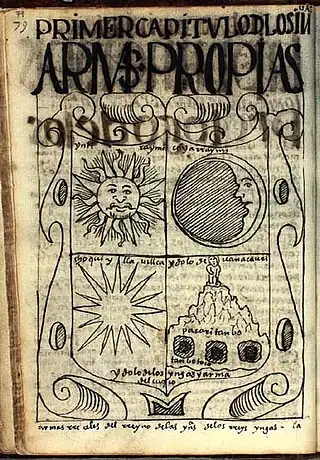 79
PRIMER CAPITVLO DLOS IN
ARMAS PROPIAS
ynti raymi coya raymi
choqui ylla uillca ydolo de uanacauri
pacaritanbo
tanbotoco
ydolo de los yngas y arma
del cuzco
armas reales del reyno de las yns de los reys yngas - la